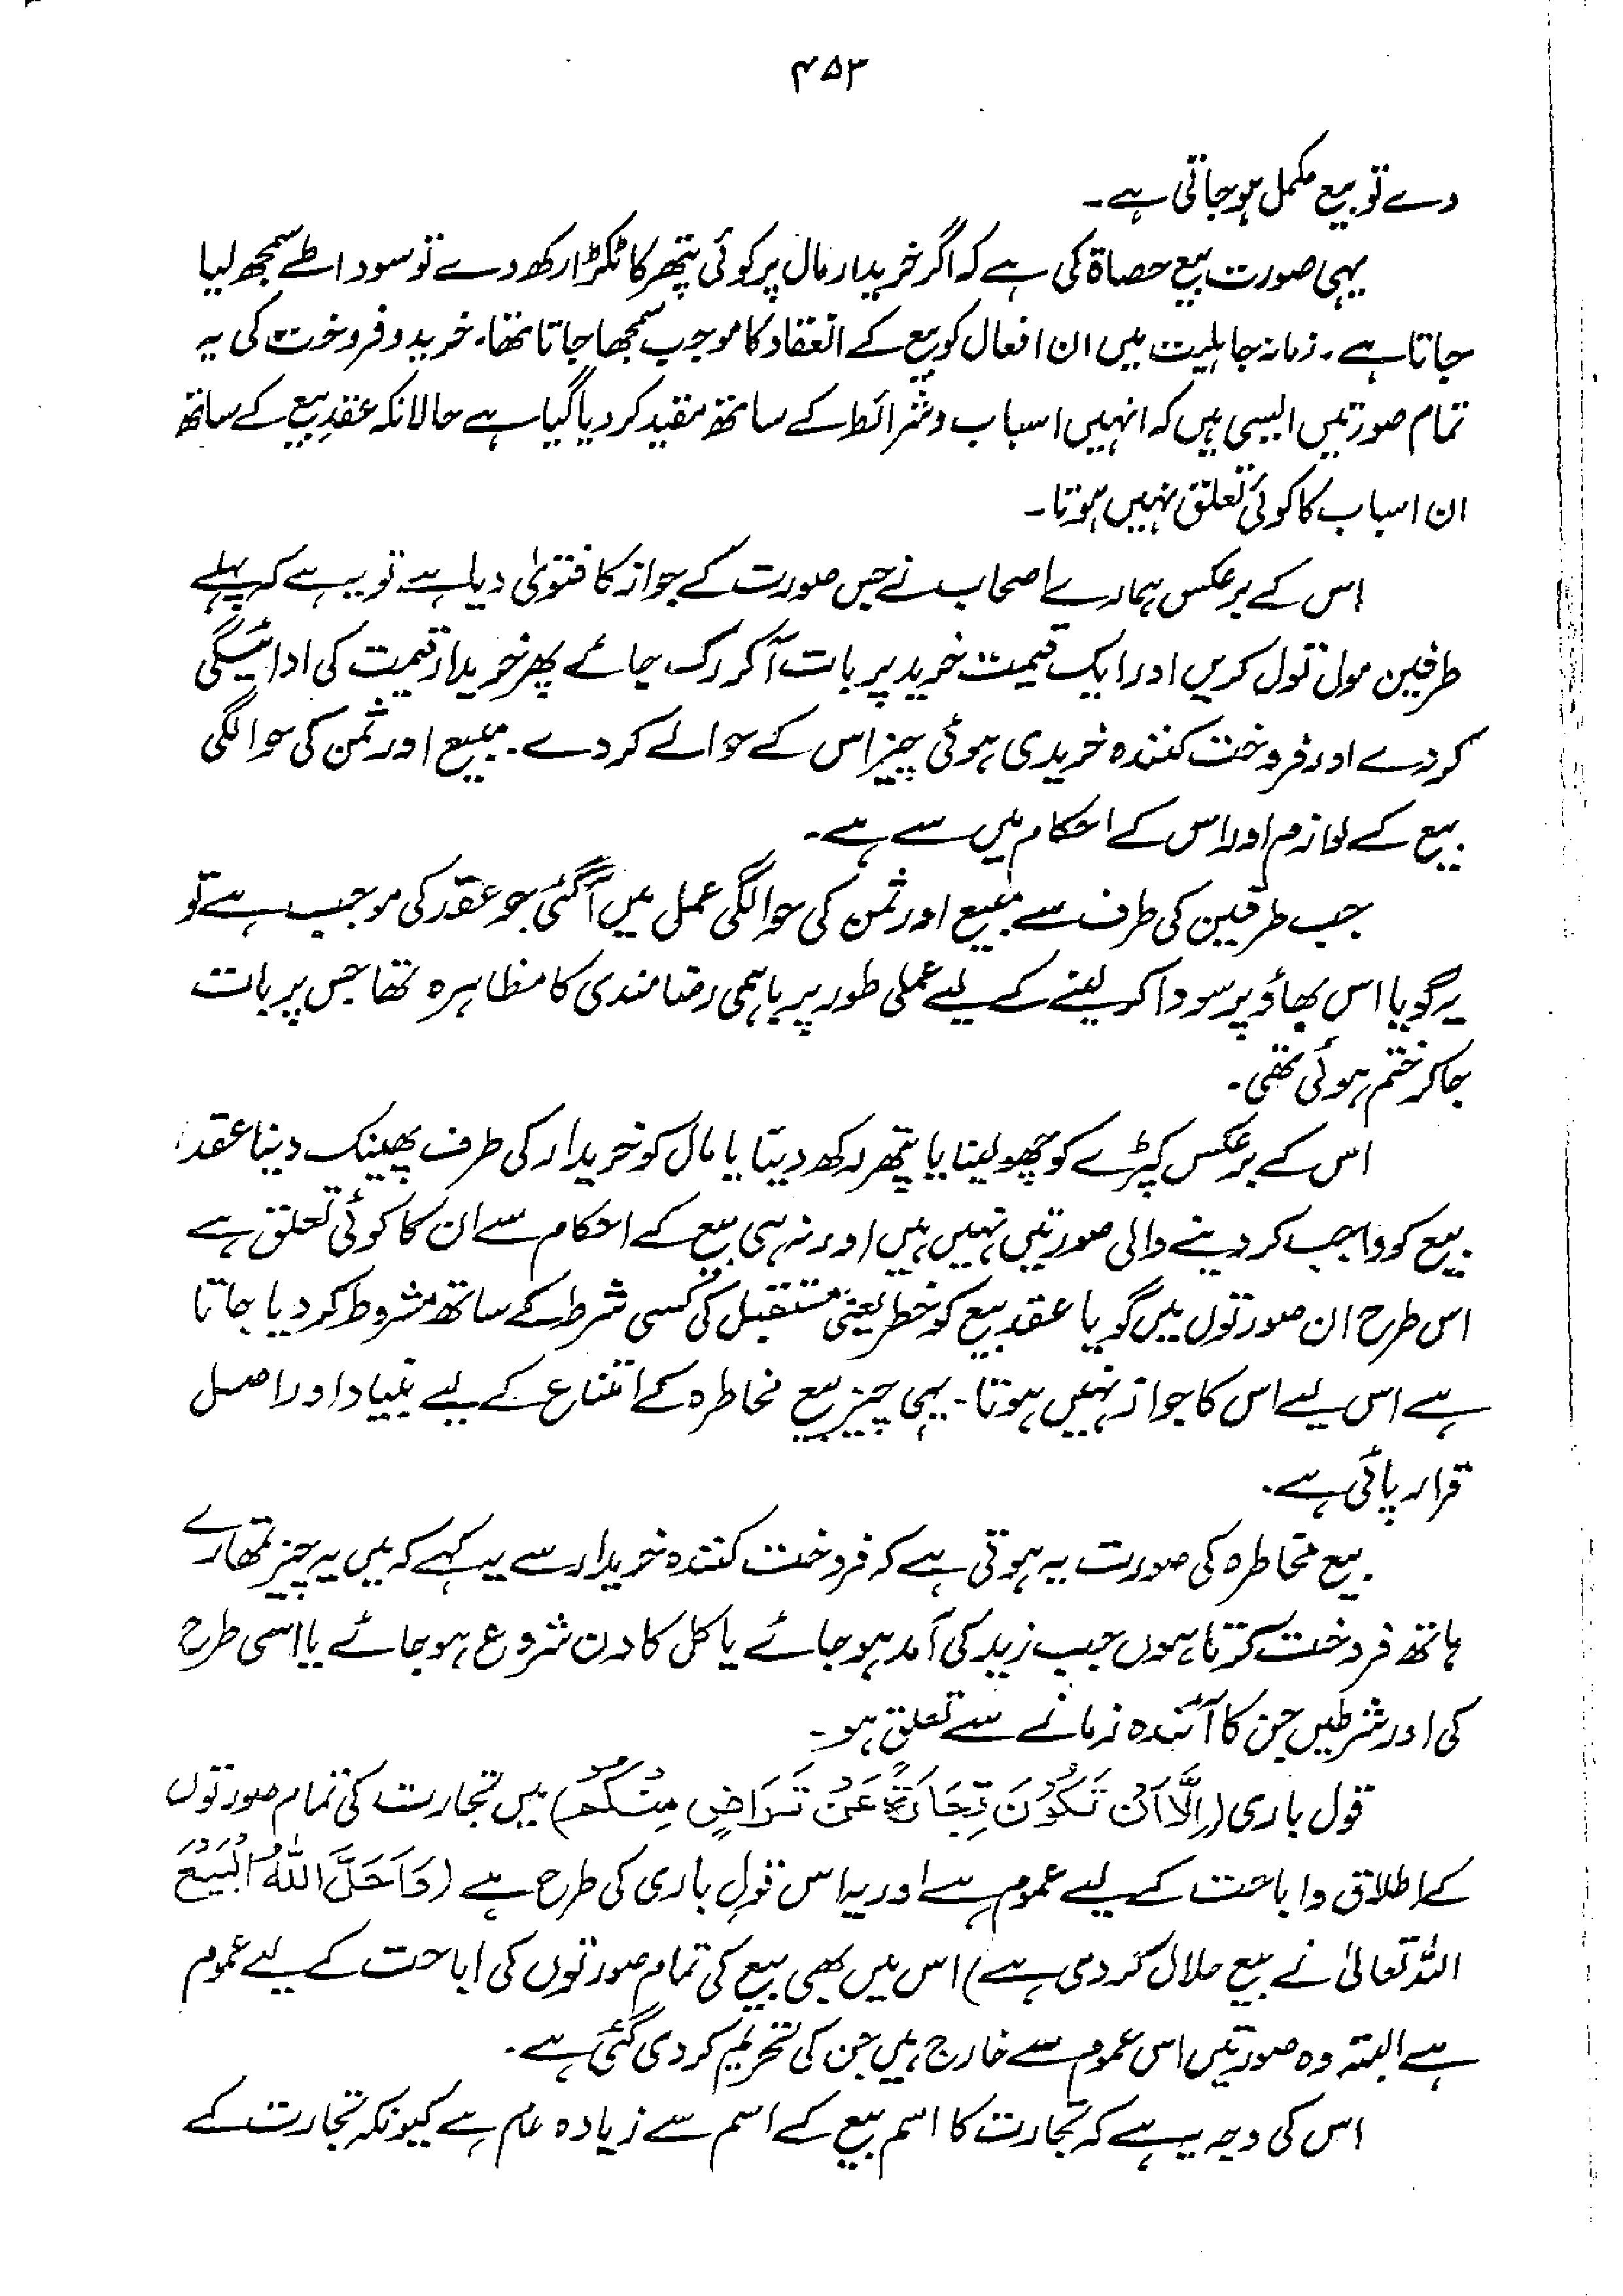 ۴۵۳
دے تو بیع مکمل ہو جاتی ہے۔
یہی صورت بیع حصاۃ کی ہے کہ اگر خریدار مال پر کوئی پتھر کا ٹکڑا رکھ دے تو سودا طے سمجھ لیا
جاتا ہے۔ زمانہ جاہلیت میں ان افعال کو بیع کے انعقاد کا موجب سمجھا جاتا تھا۔ خرید و فروخت کی یہ
تمام صورتیں ایسی ہیں کہ انہیں اسباب و شرائط کے ساتھ مقید کر دیا گیا ہے حالانکہ عقدِ بیع کے ساتھ
ان اسباب کا کوئی تعلق نہیں ہوتا۔
اس کے برعکس ہمارے اصحاب نے جس صورت کے جواز کا فتویٰ دیا ہے تو یہ ہے کہ پہلے
طرفین مول تول کریں اور ایک قیمت خرید پر بات آ کر رک جائے پھر خریدار قیمت کی ادائیگی
کردے اور فروخت کنندہ خریدی ہوئی چیز اس کے حوالے کر دے۔ مبیع اور ثمن کی حوالگی
بیع کے لوازم اور اس کے احکام میں سے ہے۔
جب طرفین کی طرف سے مبیع اور ثمن کی حوالگی عمل میں آ گئی جو عقد کی موجب ہے تو
یہ گویا اس بھاؤ پر سودا کر لینے کے لیے عملی طور پر باہمی رضامندی کا مظاہرہ تھا جس پر بات
جا کر ختم ہوئی تھی۔
اس کے برعکس کپڑے کو چھو لینا یا پتھر رکھ دینا یا مال کو خریدار کی طرف پھینک دینا عقد
بیع کو واجب کر دینے والی صورتیں نہیں ہیں اور نہ ہی بیع کے احکام سے ان کا کوئی تعلق ہے
اس طرح ان صورتوں میں گویا عقدِ بیع کو خطر یعنی مستقبل کی کسی شرط کے ساتھ مشروط کر دیا جاتا
ہے اس لیے اس کا جواز نہیں ہوتا۔ یہی چیز بیع مخاطرہ کے امتناع کے لیے بنیاد اور اصل
قرار پائی ہے۔
بیع مخاطرہ کی صورت یہ ہوتی ہے کہ فروخت کنندہ خریدار سے یہ کہے کہ میں یہ چیز تمھارے
ہاتھ فروخت کرتا ہوں جب زید کی آمد ہو جائے یا کل کا دن شروع ہو جائے یا اسی طرح
کی اور شرطیں جن کا آئندہ زمانے سے تعلق ہو۔
قول باری (اِلَّا اَنْ تَكُوْنَ تِجَارَةً عَنْ تَرَاضٍ مِنْكُمْ) میں تجارت کی تمام صورتوں
کے اطلاق و اباحت کے لیے عموم ہے اور یہ اس قولِ باری کی طرح ہے (وَاَحَلَّ اللّٰهُ الْبَيْعَ
اللہ تعالیٰ نے بیع حلال کر دی ہے) اس میں بھی بیع کی تمام صورتوں کی اباحت کے لیے عموم
ہے البتہ وہ صورتیں اس عموم سے خارج ہیں جن کی تحریم کر دی گئی ہے۔
اس کی وجہ یہ ہے کہ تجارت کا اسم بیع کے اسم سے زیادہ عام ہے کیونکہ تجارت کے